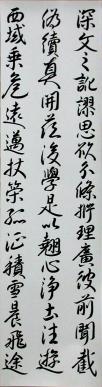 深文之訛謬思欲分條析理廣彼前聞截
偽續真開茲後學是以翹心淨土往遊
西域乘危遠邁杖策孤征積雪晨飛途